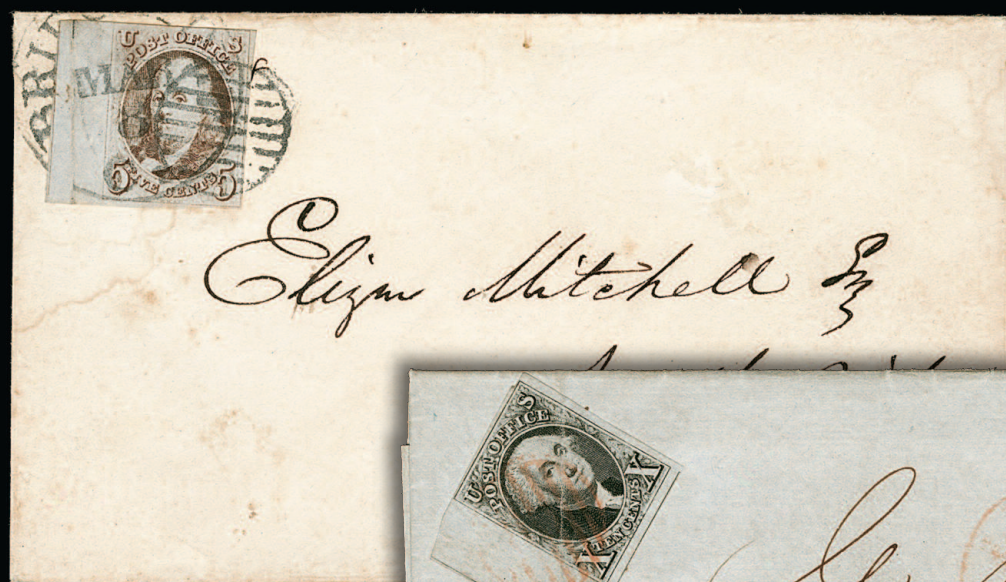 BRI
MAY
U S
POST OFFICE
5 FIVE CENTS 5
Elizur Mitchell Esq
U S
POST OFFICE
X TEN CENTS X